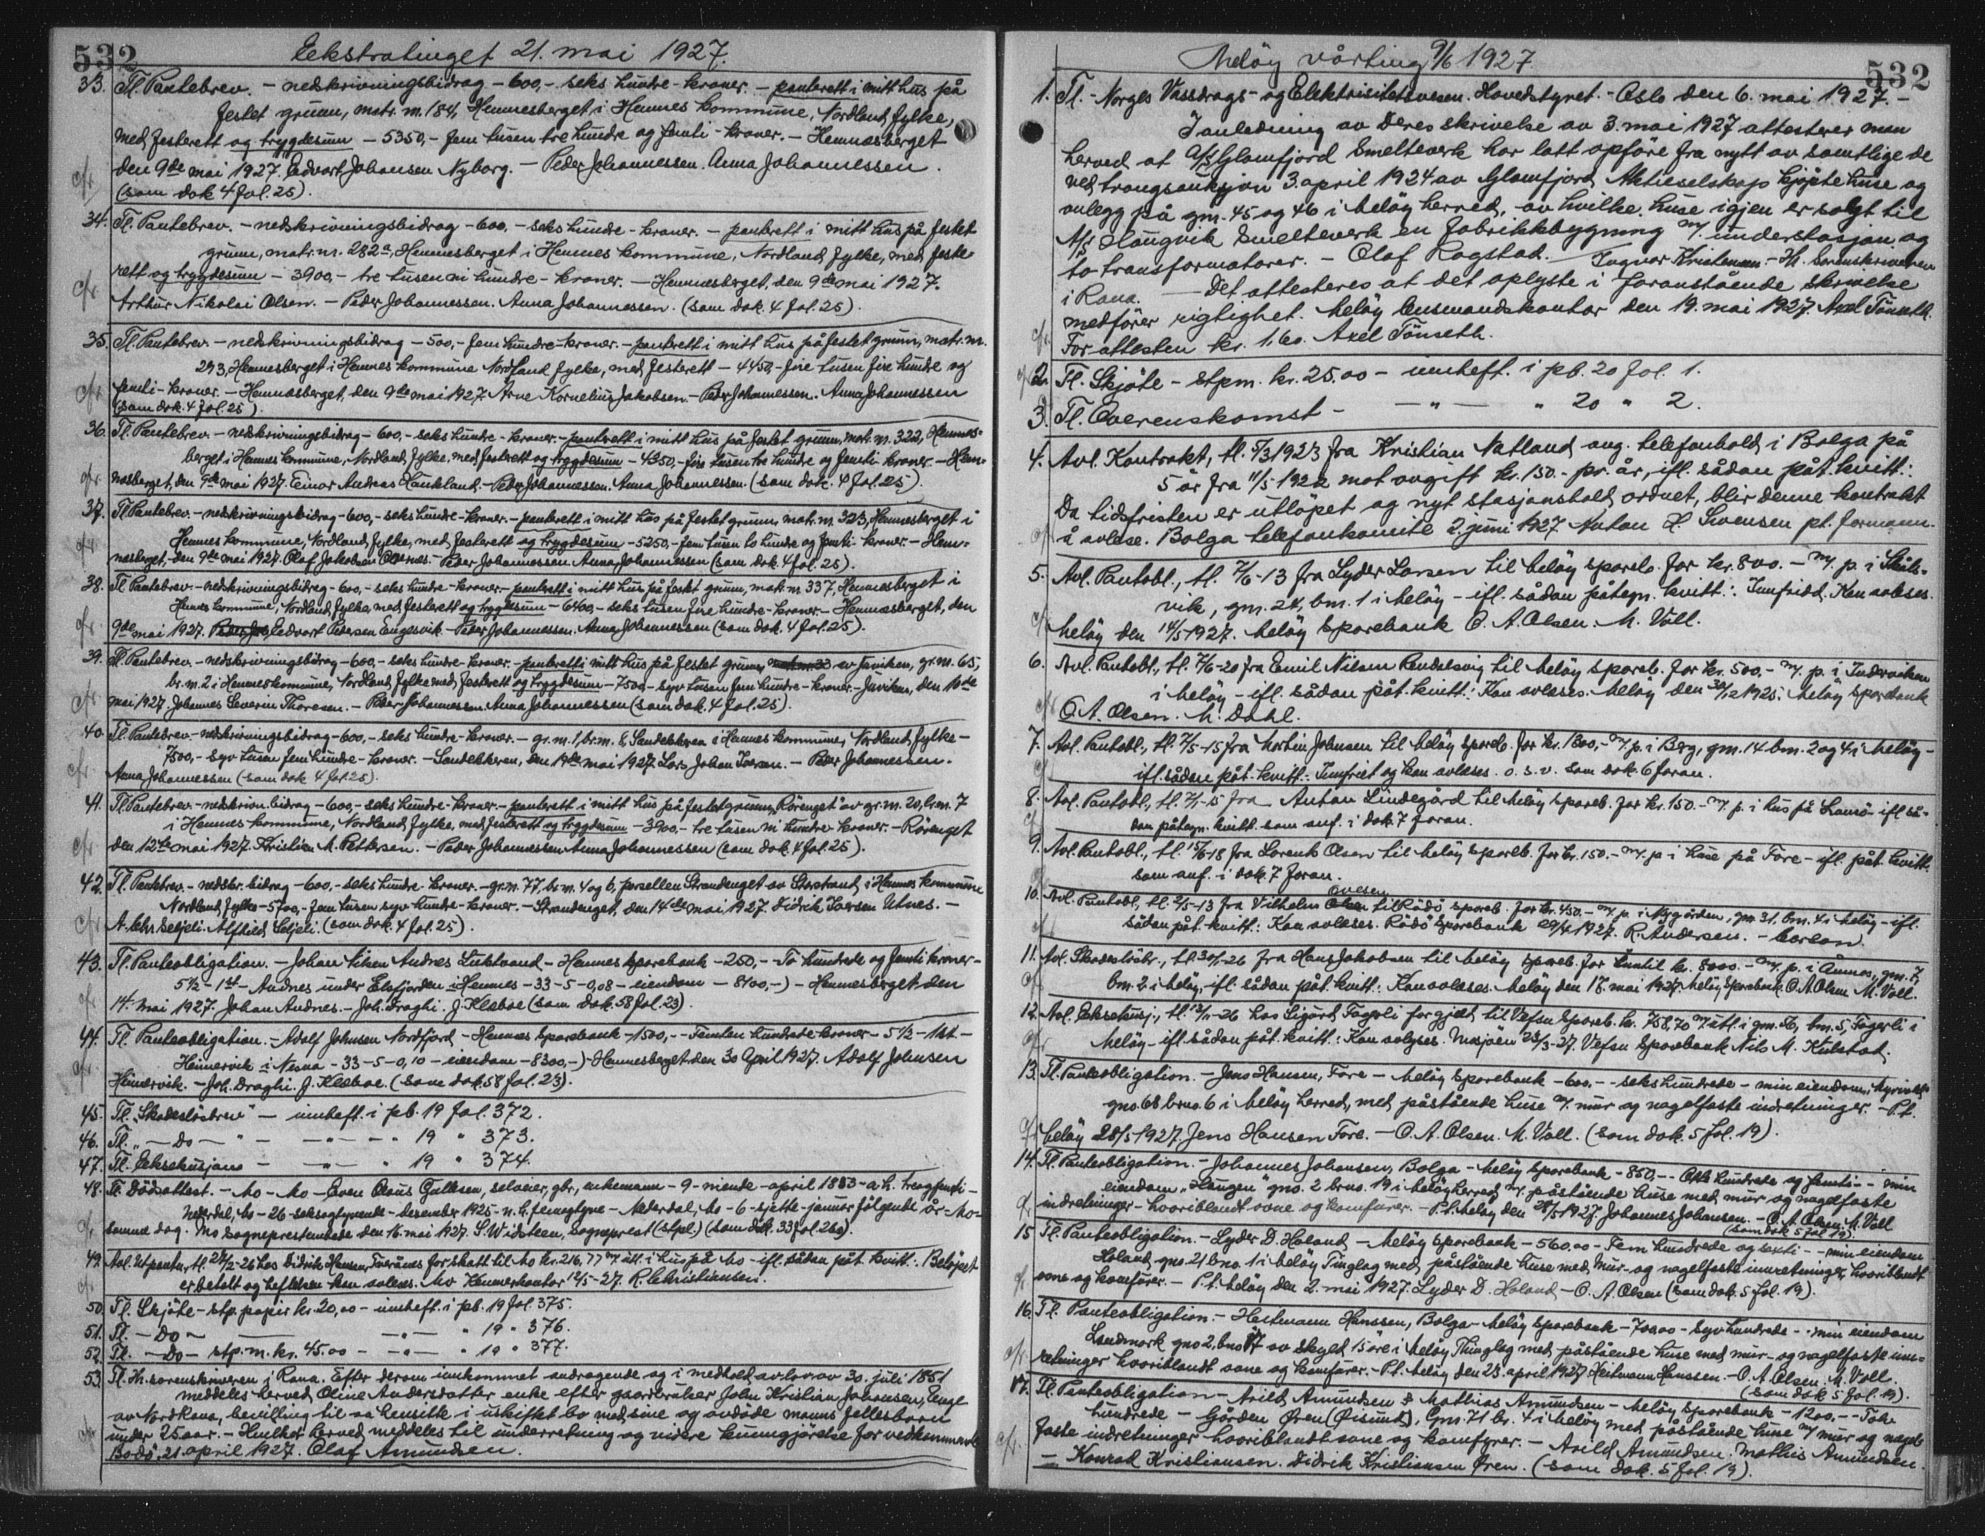 532
Ekstratinget 21. mai 1927.
33. Tl. Pantebrev. - nedskrivningsbidrag - 600,- seks hundre - kroner. - panterett i mitt hus på
festet grunn, matr. nr. 184, Hemnesberget i Hemnes kommune, Nordland fylke,
med festerett og trygdesum - 5350,- fem tusen tre hundre og femti - kroner. - Hemnesberget
den 9de mai 1927. Edvart Johansen Nyborg. - Peder Johannessen. Anna Johannessen.
(som dok 4 fol. 25).
34. Tl. Pantebrev. - nedskrivningsbidrag - 600,- seks hundre - kroner. - panterett i mitt hus på festet
grunn, matr. nr. 282a, Hemnesberget i Hemnes kommune, Nordland fylke, med feste-
rett og trygdesum - 3900,- tre tusen ni hundre - kroner. - Hemnesberget, den 9de mai 1927.
Arthur Nikolai Olsen. - Peder Johannessen. Anna Johannessen. (som dok. 4 fol. 25).
35. Tl. Pantebrev. - nedskrivningsbidrag - 500,- fem hundre - kroner. - panterett i mitt hus på festet grunn, matr. nr.
293, Hemnesberget i Hemnes kommune Nordland fylke, med festerett - 4450,- fire tusen fire hundre og
femti - kroner. - Hemnesberget, den 9de mai 1927 Arne Kornelius Jakobsen. - Peder Johannessen. Anna Johannessen
(som dok. 4 fol. 25).
36. Tl. Pantebrev. - nedskrivningsbidrag - 600,- seks hundre - kroner. - panterett i mitt hus på festet grunn, matr. nr. 322, Hemnes-
berget i Hemnes kommune, Nordland fylke, med festerett og trygdesum - 4350,- fire tusen tre hundre og femti - kroner. - Hem-
nesberget, den 9de mai 1927. Einar Andreas Haukland. - Peder Johannessen. Anna Johannessen. (som dok. 4 fol. 25).
37. Tl. Pantebrev. - nedskrivningsbidrag - 600,- seks hundre - kroner. - panterett i mitt hus på festet grunn, matr. nr. 323, Hemnesberget i
Hemnes kommune, Nordland fylke, med festerett og trygdesum - 5250,- fem tusen to hundre og femti - kroner. - Hem-
nesberget, den 9de mai 1927. Olaf Jakobsen - Peder Johannessen. Anna Johannessen (som dok. 4 fol. 25).
38. Tl. Pantebrev. - nedskrivningsbidrag - 600,- seks hundre - kroner - panterett i mitt hus på festet grunn, matr. nr. 337, Hemnesberget i
Hemnes kommune, Nordland fylke, med festerett og trygdesum - 6400,- seks tusen fire hundre - kroner. - Hemnesberget, den
9de mai 1927. Edvart Pedersen Engesvik. - Peder Johannessen. Anna Johannessen (som dok. 4 fol. 25).
39. Tl. Pantebrev. - nedskrivningsbidrag - 600,- seks hundre - kroner. - panterett i mitt hus på festet grunn, av Juviken, gr. nr. 65,
br. nr. 2 i Hemnes kommune, Nordland fylke med festerett og trygdesum - 7500,- syv tusen fem hundre - kroner. - Juviken, den 10de
mai 1927. Johannes Severin Thoresen. - Peder Johannessen. Anna Johannessen (som dok. 4 fol. 25).
40. Tl. Pantebrev. - nedskrivningsbidrag - 600,- seks hundre - kroner. - gr. nr. 1, br. nr. 8, i Hemnes kommune, Nordland fylke -
7500,- syv tusen fem hundre - kroner. - den 19de mai 1927. Lars Johan - Peder Johannessen.
Anna Johannessen (som dok 4 fol. 25).
41. Tl. Pantebrev. - nedskrivn. bidrag - 600,- seks hundre - kroner. - panterett i mitt hus på festet grunn „Rørenget" av gr. nr. 20, br. nr. 7
i Hemnes kommune, Nordland fylke, med festerett og trygdesum - 3900,- tre tusen ni hundre kroner. - Rørenget
den 12te mai 1927. Kristian M. Pettersen. - Peder Johannessen Anna Johannessen (som dok. 4 fol. 25).
42. Tl. Pantebrev. - nedskr. bidrag - 600,- seks hundre - kroner. - gr. nr. 77, br. nr. 4 og 6, parsellen Strandenget av Storstrand, i Hemnes kommune
Nordland fylke - 5700,- fem tusen syv hundre - kroner. - Strandenget, den 14de mai 1927. Didrik Iversen Utnes. -
A. Chr. Seljeli. Alfhild Seljeli. (som dok. 4 fol. 25).
43. Tl. Panteobligation. - Johan Andnes - Hemnes sparebank - 250,- To hundrede og femti kroner -
5½ - 1st - Andnes under Elvfjorden i Hemnes - 33 - 5 - 0,08 - eiendom - 8100,-) - Hemnesberget den
14. mai 1927. Johan Andnes. - Joh. Draghi. J. Kleboe (som dok. 58 fol. 23).
44. Tl. Panteobligation. - Adolf Johnsen Nordfjord - Hemnes Sparebank - 1500,- Femten hundrede kroner - 5½ - 1st -
Heinervik i Nesna - 33 - 5 - 0,10 - eiendom - 8200,-) - Hemnesberget den 30 April 1927. Adolf Johnsen
Heinervik. - Joh. Draghi. J. Kleboe. (som dok. 58 fol. 23).
45. Tl. „Skadesløsbrev" - innheft. i pb. 19 fol. 372.
46. Tl. „ - Do - " - - " - - " 19 " 373.
47. Tl. Eksekusjons - - " - " 19 " 374.
48. Tl. Dødsattest. - Mo - Mo - Even Olaus Gullesen, selveier, gbr, enkemann - 9 - niende - april 1853 -
Mo - 26 - seksogtyvende - desember 1925 - Mo - 6 - sjette - januar følgende år - Mo -
samme dag. Mo sogneprestembede den 16. mai 1927. S. Widsteen, sogneprest (stpl.) (som dok. 33 fol 260).
49. Avl. Utpantn., tl. 24/2-26 hos Didrik Hansen, for skatt til Mo kr. 216,77 m. utl. i hus på Mo - ifl. sådan påt. kvitt.: Beløpet
er betalt og heftelsen kan avleses. Mo Kemnerkontor 12/5-27. R. Christiansen.
50. Tl. Skjøte - stp. papir kr. 20,00 - innheft. i pb. 19 fol. 375.
51. Tl. - Do - - " - " 19 " 376.
52. Tl. - Do - stp. m. kr. 45.00 - - " - " 19 " 377.
53. Tl. Hr. sorenskriveren i Rana. Efter derom innkommet andragende og i medhold av lov av 30. juli 1851
meddeles herved Oline Andersdatter enke efter gaardbruker John Kristian Johansen, Enge
av Nord Rana, bevilling til aa hensitte i uskiftet bo med sine og avdøde manns fellesbarn
under 25 aar. - Hvilket herved meddeles til underretning og videre kunngjørelse for vedkommende
Bodø, 21 april 1927. Olaf Amundsen.
Meløy vårting 9/6 1927.
532
1. Tl. - Norges Vassdrags- og Elektrisitetsvesen. Hovedstyret. - Oslo den 6. mai 1927. -
I anledning av Deres skrivelse av 3. mai 1927 attesterer man
herved at A/S Glomfjord Smelteverk har latt opføre fra nytt av samtlige de
ved tvangsauksjon 3. april 1924 av Glomfjord Aktieselskap kjøpte huse og
anlegg på gnr. 45 og 46 i Meløy herred, av hvilke huse igjen er solgt til
A/S Haugvik Smelteverk en fabrikkbygning m/ understasjon og
to transformatorer. - Olaf Rogstad. Ingvar Kristensen - Hr. Sorenskriveren
i Rana. - Det attesteres at det oplyste i foranstående skrivelse
medfører rigtighet. Meløy lensmandskontor den 19. mai 1927. Axel Tönseth.
For attesten kr. 1.60. Axel Tönseth.
2. Tl. Skjøte - stpm. kr. 25.00 - innheft. i pb. 20 fol. 1.
3. Tl. Overenskomst - - " - " 20 " 2.
4. Avl. Kontrakt, tl. 5/3 1923 fra Kristian Natland ang. telefonhold i Bolga på
5 år fra 11/5 1922 mot avgift kr. 150.- pr. år, ifl. sådan påt. kvitt.:
Da tidsfristen er utløpet og nyt stasjonshold ordnet, blir denne kontrakt
å avlese. Bolga telefonkomite 2. juni 1927. Anton H. Svensen pt. formann.
5. Avl. Pantobl., tl. 7/6-13 fra Lyder Larsen til Meløy spareb. for kr. 800. - m. p. i Skäls-
vik, gnr. 24, bnr. 1 i Meløy - ifl. sådan påtegn. kvitt.: Innfridd. Kan avleses.
Meløy den 14/5 1927. Meløy Sparebank O. A. Olsen. M. Voll.
6. Avl. Pantobl., tl. 7/6-20 fra Emil Nilsen til Meløy spareb. for kr. 500,- m. p. i
i Meløy - ifl. sådan påt. kvitt.: Kan avleses. Meløy den 30/12 1925. Meløy Sparebank
O. A. Olsen. M. Dahl.
7. Avl. Pantobl., tl. 7/5-15 fra Martin Johnsen til Meløy spareb. for kr. 1300,- m. p. i Berg, gnr. 14 bnr. 2 og 4 i Meløy -
ifl. sådan påt. kvitt.: Innfriet og kan avleses. o. s. v. som dok. 6 foran.
8. Avl. Pantobl., tl. 7/1-15 fra Anton Lindegård til Meløy spareb. for kr. 150.- m. p. i hus på - ifl. så-
dan påtegn. kvitt. som anf. i dok. 7 foran.
9. Avl. Pantobl., tl. 15/6-18 fra Lorents Olsen til Meløy spareb. for kr. 150.- m. p. i huse på Fore - ifl. påt. kvitt.
som anf. i dok. 7 foran.
10. Avl. Pantobl., tl. 2/5-13 fra Vilhelm til Rødø spareb. for kr. 450.- m. p. i Nygården, gnr 31, bnr. 4 i Meløy - ifl.
sådan påt. kvitt.: Kan avleses. Rødø Sparebank 29/4 1927. R. Andersen. -
11. Avl. Skadesløsbr., tl. 30/1-26 fra Hans Jakobsen til Meløy spareb. for inntil kr. 8000.- m. p. i Ånnes, gnr. 7,
bnr. 2 i Meløy, ifl. sådan påt. kvitt.: Kan avleses. Meløy den 18. mai 1927. Meløy Sparebank O. A. Olsen. M. Voll.
12. Avl. Eksekusj., tl. 12/1-26 hos Sigurd Fagerli for gjæld til Vefsn Spareb. kr. 758,70 m. utl. i gnr. 56, bnr. 5, Fagerli i
Meløy - ifl. sådan påt. kvitt.: Kan avlyses. Mosjøen 23/3-27. Vefsn Sparebank Nils M. Kulstad.
13. Tl. Panteobligation. - Jens Hansen, Fore - Meløy Sparebank - 600.- - seks hundrede - min eiendom,
gno. 68 brno. 6 i Meløy herred, med påstående huse m. mur og nagelfaste indretninger. - P.t.
Meløy 28/5 1927. Jens Hansen Fore. - O. A. Olsen. M. Voll. (som dok. 5 fol. 19).
14. Tl. Panteobligation. - Johannes Johansen, Bolga - Meløy Sparebank - 850,- - Otte hundrede og femti - - min
eiendom „Haugen" gno. 2 brno. 19 i Meløy herred m. påstående huse med mur og nagelfaste
indretninger - hvoriblandt ovne og komfurer. - P.t. Meløy den 28/5 1927 Johannes Johansen. - O. A. Olsen. M. Voll
(som dok 5 fol. 19).
15. Tl. Panteobligation. - Lyder D. Holand - Meløy Sparebank - 560.00 - Fem hundrede og sexti - - min eiendom
Holand, gno. 21 brno. 1 i Meløy Tinglag med påstående huse med mur- og nagelfaste innretninger, hvoriblandt
ovne og komfurer. - P.t. Meløy den 2. mai 1927. Lyder D. Holand - O. A. Olsen (som dok. 5 fol. 19).
16. Tl. Panteobligation. - Heitmann Hanssen, Bolga - Meløy Sparebank - 700.00 - Syv hundrede - - min eiendom
Landmark gno 2, brno 17 av skyld 15 øre i Meløy Thinglag med påstående huse med mur- og nagelfaste inn-
retninger hvoriblandt ovne og komfurer. - P.t. Meløy den 23. april 1927 Heitmann Hanssen. - O. A. Olsen. M. Voll.
(som dok. 5 fol. 19).
17. Tl. Panteobligation - Arild Amundsen & Mathias Amundsen - Meløy Sparebank - 1200,- - Tolv
hundrede - Gården Øren (Øisund), Gnr. 71 br. 4 i Meløy med påstående huse m/ mur og nagel-
faste indretninger hvoriblandt ovne og komfyrer. - Arild Amundsen. Mathis Amundsen.
- Konrad Kristiansen. Didrik Kristiansen Øren. (som dok. 5 fol. 19).